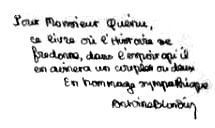 Pour Monsieur Quéru,
ce livre où l'Histoire se
fredonne, dans l'espoir qu'il
en aimera un couplet ou deux
En hommage sympathique
Antoine Blondin